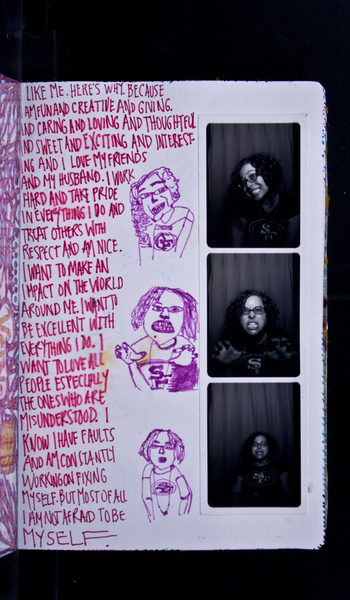 LIKE ME. HERE'S WHY. BECAUSE
AM FUN AND CREATIVE AND GIVING.
AND CARING AND LOVING AND THOUGHTFUL
ND SWEET AND EXCITING AND INTEREST-
ING AND I LOVE MY FRIENDS
AND MY HUSBAND. I WORK
HARD AND TAKE PRIDE
IN EVERYTHING I DO AND
TREAT OTHERS WITH
RESPECT AND AM NICE.
I WANT TO MAKE AN
IMPACT ON THE WORLD
AROUND ME. I WANT TO
BE EXCELLENT WITH
EVERYTHING I DO. I
WANT TO LOVE ALL
PEOPLE ESPECIALLY
THE ONES WHO ARE
MISUNDERSTOOD. I
KNOW I HAVE FAULTS
AND AM CONSTANTLY
WORKING ON FIXING
MYSELF. BUT MOST OF ALL
I AM NOT AFRAID TO BE
MYSELF.
SF
SF